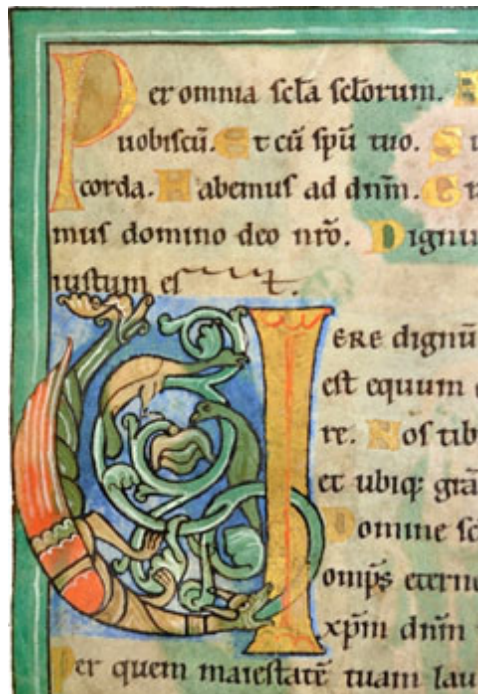 Per omnia scła scłorum.
uobiscū. Et cū spū tuo. S
corda. Habemus ad dnm̄. Gr
mus domino deo nrō. Dignu
iustum est.
VERE dignū
est equum
re. Nos tib
et ubiq; grā
Domine sc
omp̄s eterne
xp̄m dnm̄
Per quem maiestatē tuam lau